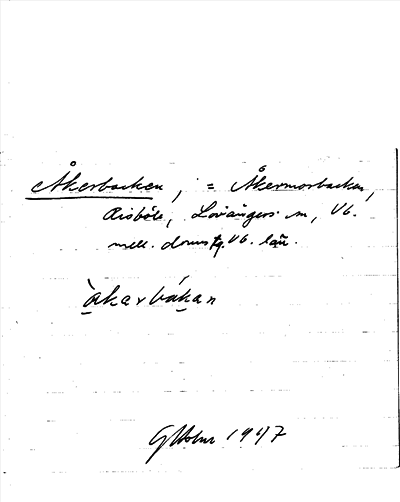 Åkerbacken, = Åkermorbacken,
Risböle, Lövångers sn, Vb.
mell. doms Vb. län.
àkarbákan
1947